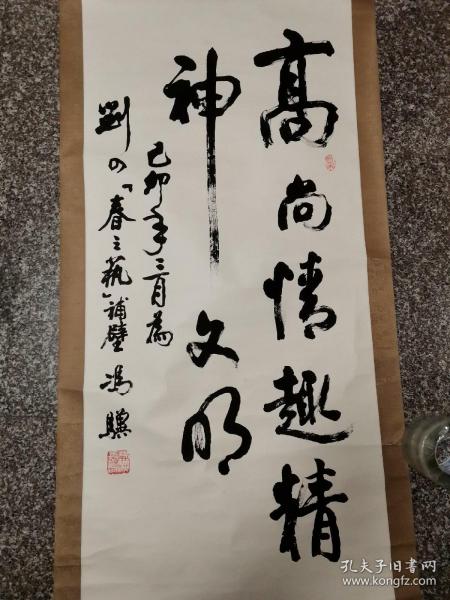 高尚情趣精
神文明
己卯年三月为
刘口「春之艺」补壁 冯骥
孔夫子旧书网
www.kongfz.com